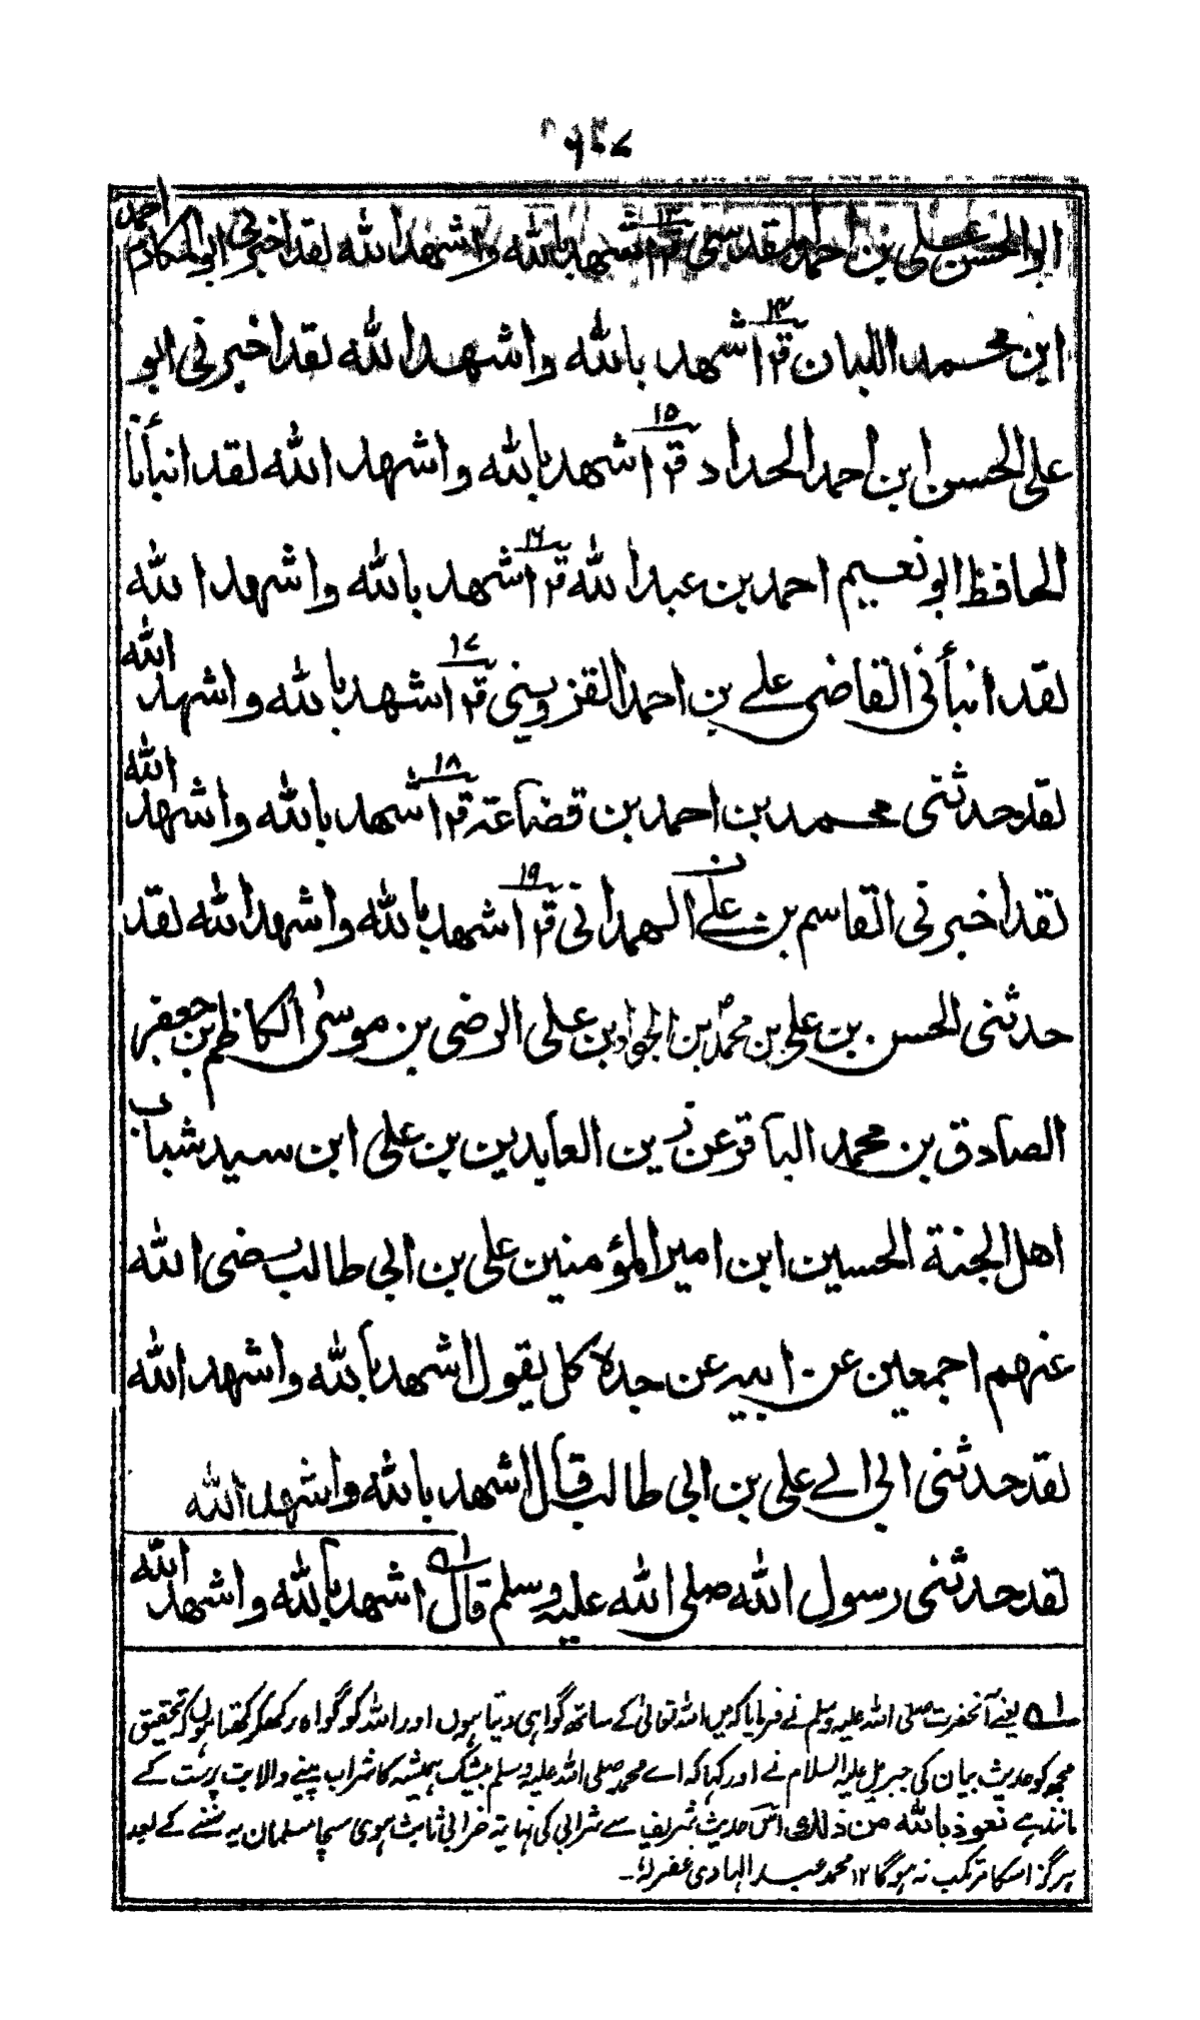 ابوالحسن علی بن احمد المقدسی ق۱۳ اشهد بالله واشهد الله لقد اخبرنی ابوالمکارم احمد
ابن محمد اللبان ق۱۴ اشهد بالله واشهد الله لقد اخبرنی ابو
علی الحسن ابن احمد الحداد ق۱۵ اشهد بالله واشهد الله لقد انبأنا
الحافظ ابو نعیم احمد بن عبد الله ق۱۶ اشهد بالله واشهد الله
لقد انبأنی القاضی علے بن احمد القزوینی ق۱۷ اشهد بالله واشهد الله
لقد حدثنی محمد بن احمد بن قضاعة ق۱۸ اشهد بالله واشهد الله
لقد اخبرنی القاسم بن علے الهمدانی ق۱۹ اشهد بالله واشهد الله لقد
حدثنی الحسن بن علی بن محمد بن الجواد بن علی الرضی بن موسیٰ الکاظم بن جعفر
الصادق بن محمد الباقر عن زین العابدین بن علی ابن سید شباب
اهل الجنة الحسین ابن امیر المؤمنین علی بن ابی طالب رضی الله
عنهم اجمعین عن ابیه عن جده کل یقول اشهد بالله واشهد الله
لقد حدثنی ابی الے علی بن ابی طالب قال اشهد بالله واشهد الله
لقد حدثنی رسول الله صلی الله علیه وسلم قال اشهد بالله واشهد الله
یعنے آنحضرت صلی الله علیہ وسلم نے فرمایا کہ میں الله تعالیٰ کے ساتھ گواہی دیتا ہوں اور الله کو گواہ رکھکر کھتا ہوں کہ تحقیق
مجھ کو حدیث بیان کی جبریل علیہ السلام نے اور کہا کہ اے محمد صلی الله علیہ وسلم بیشک ہمیشہ کا شراب پینے والا بت پرست کے
مانند ہے نعوذ بالله من ذلک اس حدیث شریف سے شرابی کی نہایة خرابی ثابت ہوی سچا مسلمان یہ سننے کے بعد
ہرگز اسکا مرتکب نہ ہوگا ۱۲ محمد عبد الهادی غفرلہ۔